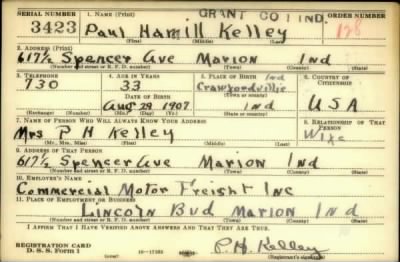 SERIAL NUMBER 1. NAME (Print) GRANT CO IND. ORDER NUMBER
3423 Paul Hamill Kelley 128
(First) (Middle) (Last)
2. ADDRESS (Print)
617½ Spencer Ave Marion Ind
(Number and street or R. F. D. number) (Town) (County) (State)
3. TELEPHONE 4. AGE IN YEARS 5. PLACE OF BIRTH Ind 6. COUNTRY OF CITIZENSHIP
730 33 Crawfordville
DATE OF BIRTH (Town or county)
Aug 29 1907 Ind USA
(Exchange) (Number) (Mo.) (Day) (Yr.) (State or country)
7. NAME OF PERSON WHO WILL ALWAYS KNOW YOUR ADDRESS 8. RELATIONSHIP OF THAT PERSON
Mrs P H Kelley Wife
(Mr., Mrs., Miss) (First) (Middle) (Last)
9. ADDRESS OF THAT PERSON
617½ Spencer Ave Marion Ind
(Number and street or R. F. D. number) (Town) (County) (State)
10. EMPLOYER'S NAME
Commercial Motor Freight Inc
11. PLACE OF EMPLOYMENT OR BUSINESS
Lincoln Bvd Marion Ind
(Number and street or R. F. D. number) (Town) (County) (State)
I AFFIRM THAT I HAVE VERIFIED ABOVE ANSWERS AND THAT THEY ARE TRUE.
REGISTRATION CARD
D. S. S. Form 1 P.H. Kelley
(Registrant's signature)